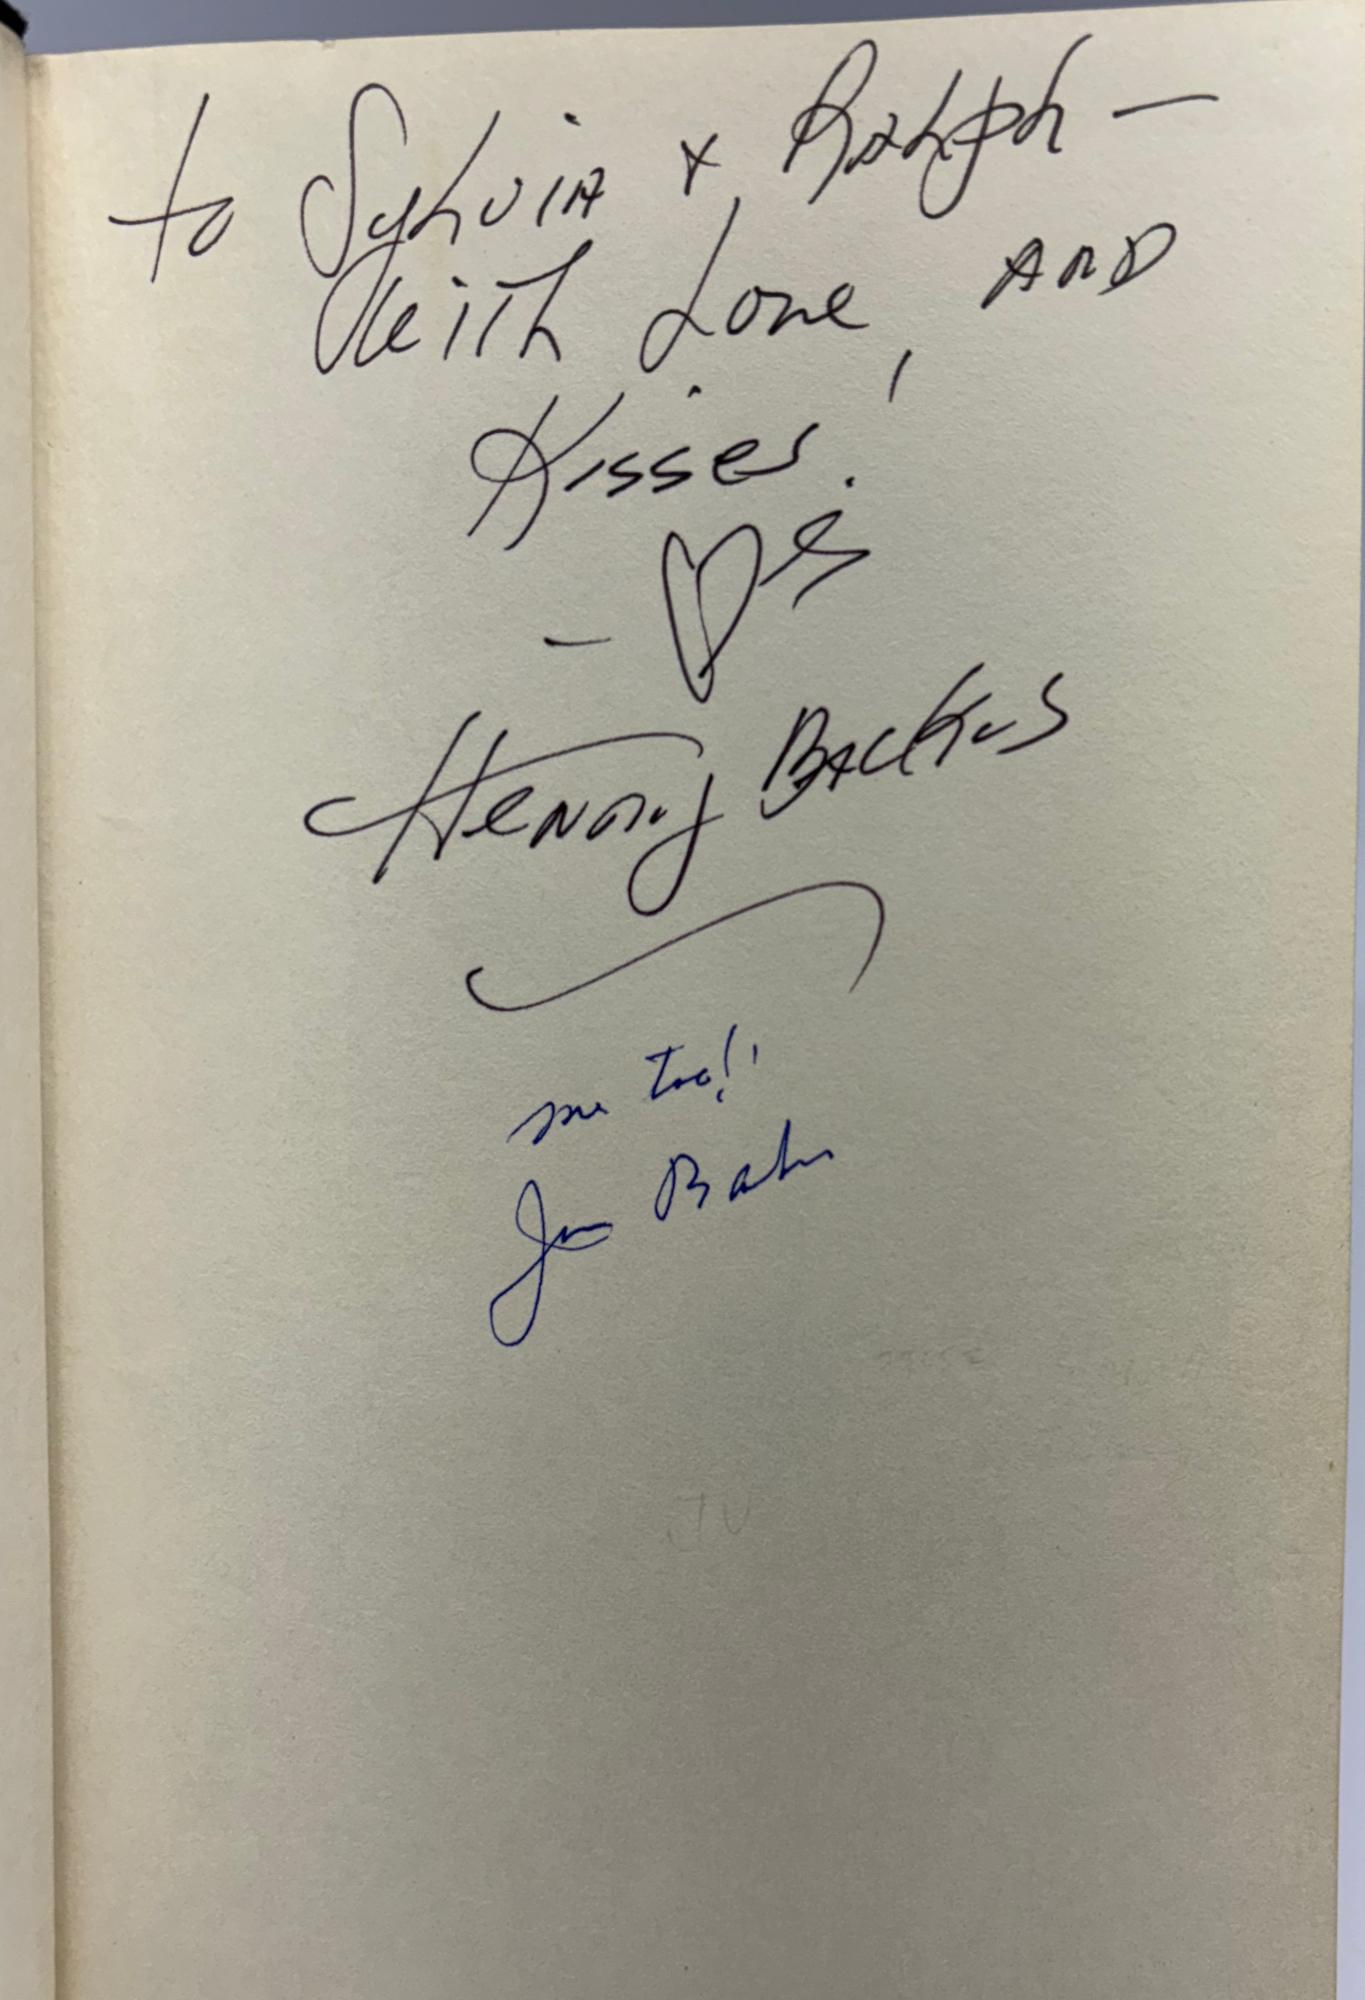 to Sylvia & Ralph —
With Love, AND
Kisses!
— ♡s
Henny Backus
me too!!
Jim Backus